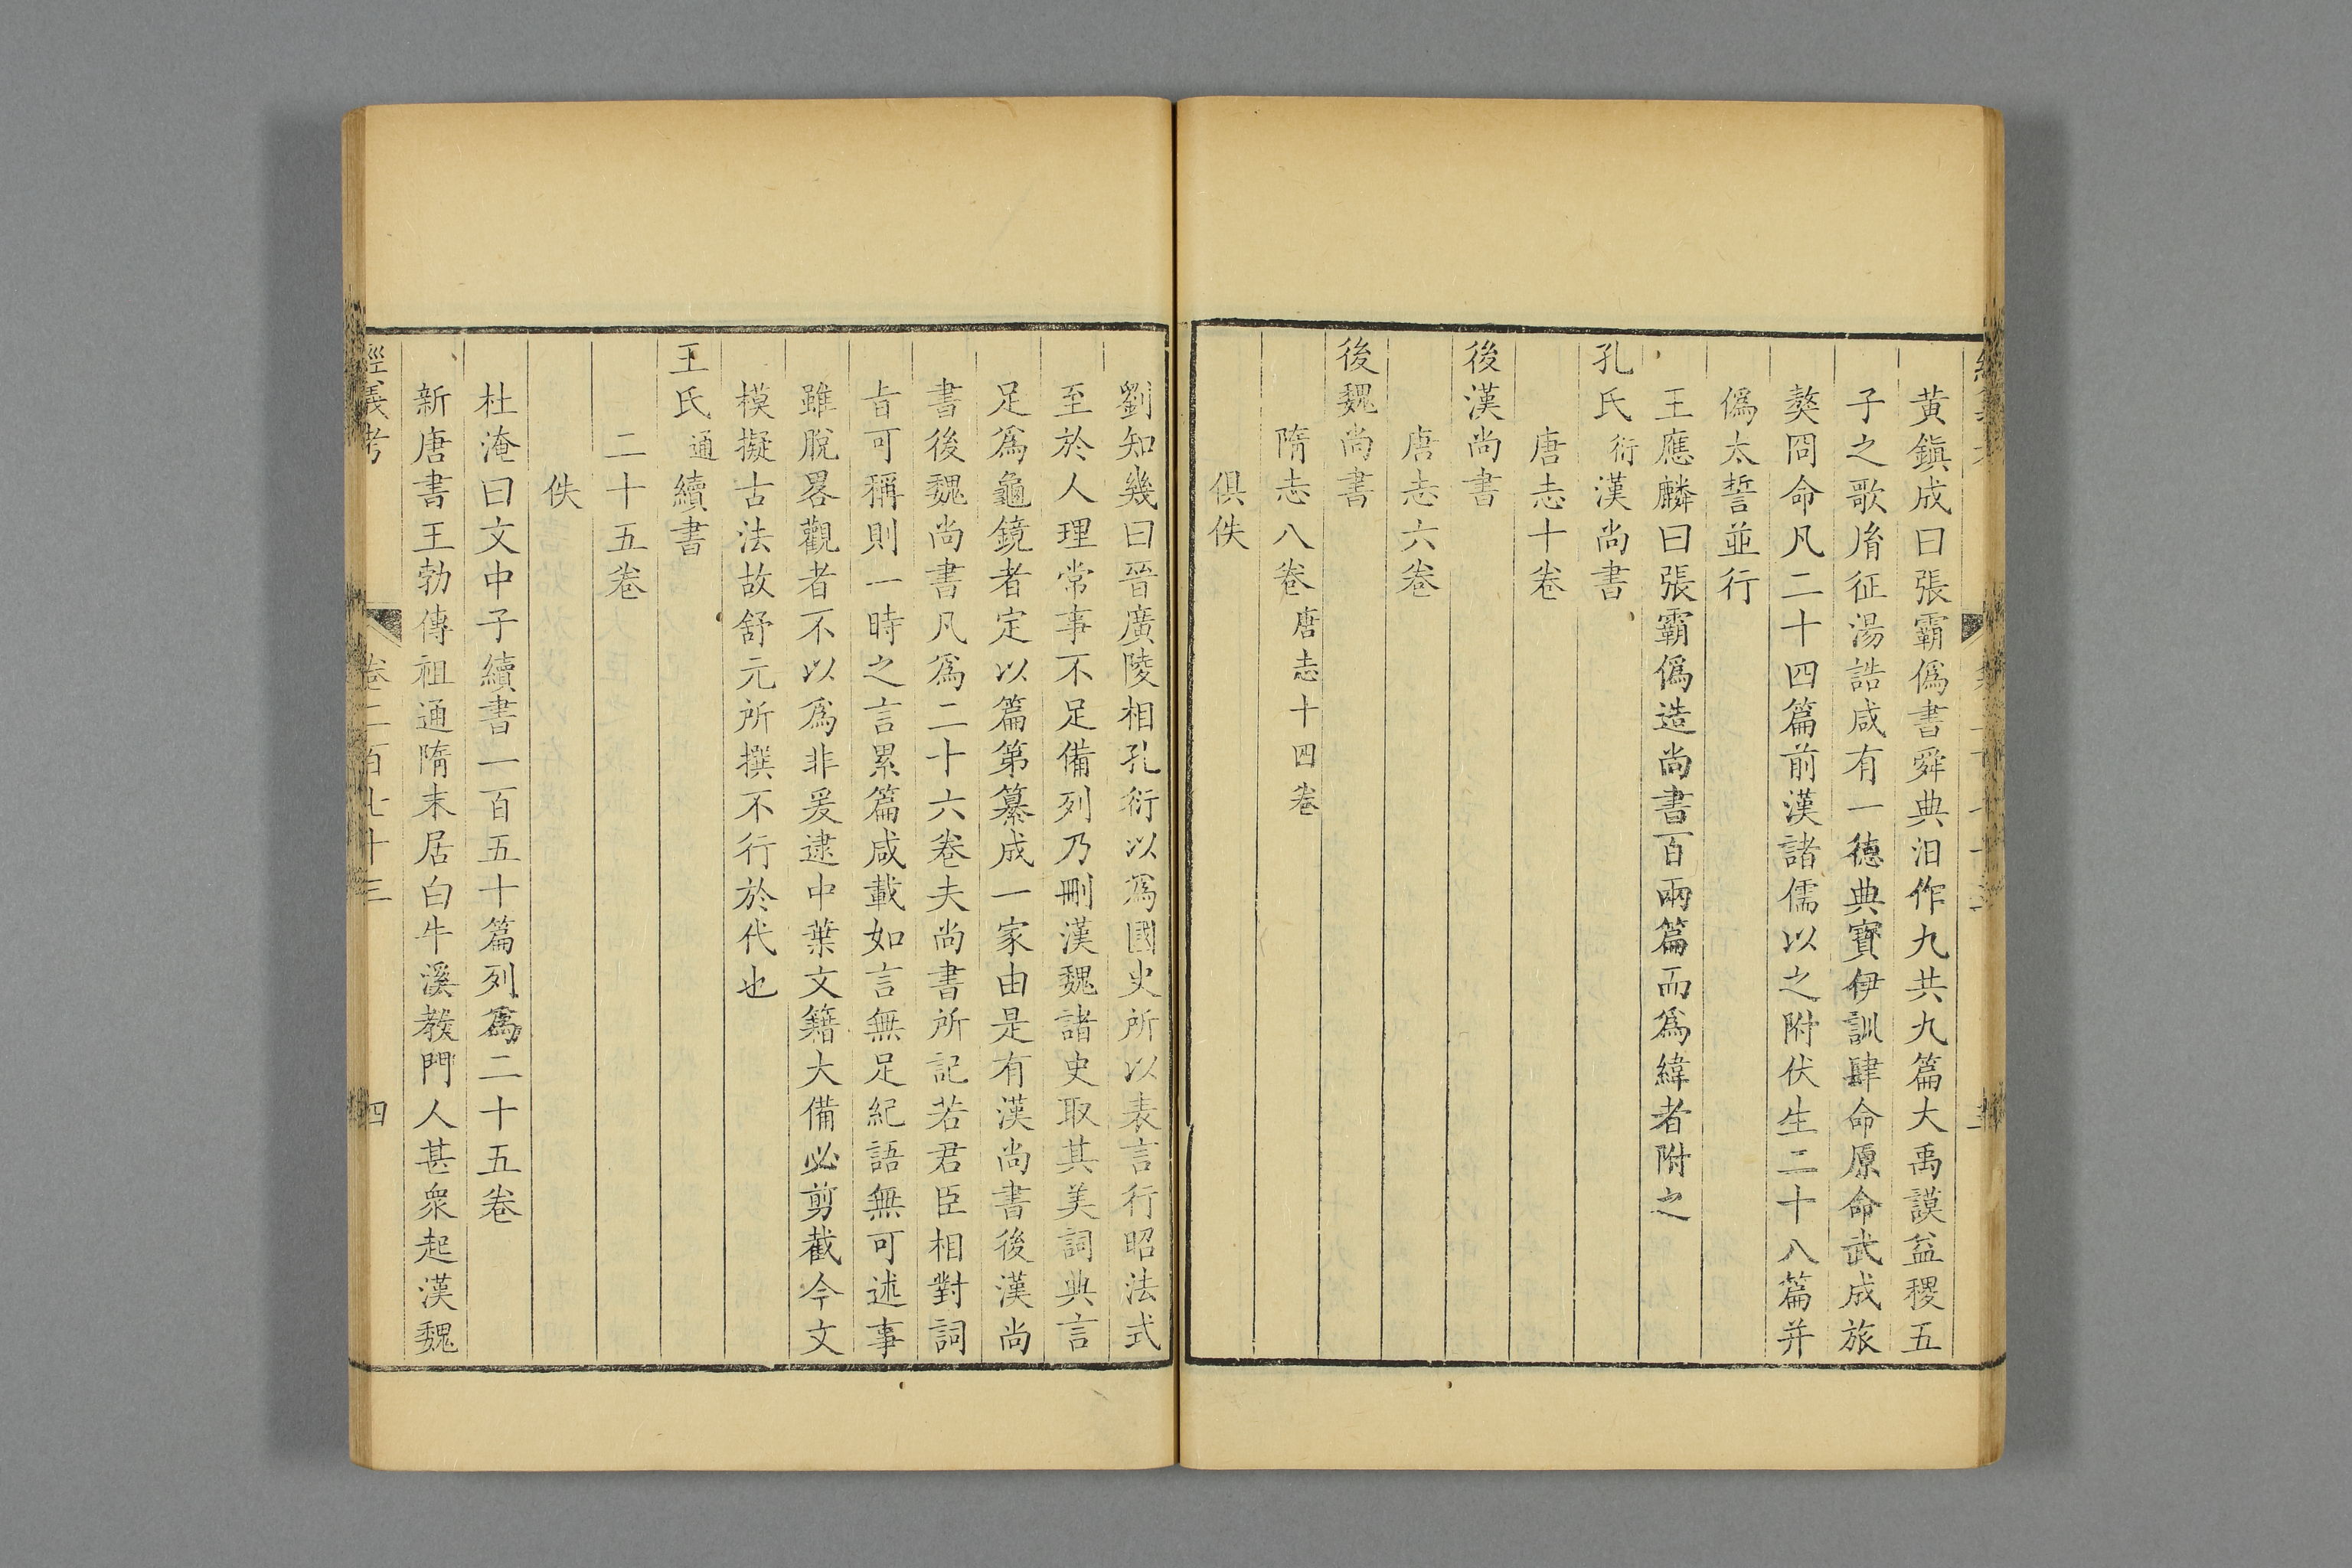 黃鎭成曰張霸僞書舜典汨作九共九篇大禹謨益稷五
子之歌胤征湯誥咸有一德典寶伊訓肆命原命武成旅
獒冏命凡二十四篇前漢諸儒以之附伏生二十八篇并
僞太誓並行
王應麟曰張霸僞造尚書百兩篇而爲緯者附之
孔氏衍漢尚書
唐志十卷
後漢尚書
唐志六卷
後魏尚書
隋志八卷唐志十四卷
俱佚
劉知幾曰晉廣陵相孔衍以爲國史所以表言行昭法式
至於人理常事不足備列乃刪漢魏諸史取其美詞典言
足爲龜鏡者定以篇第纂成一家由是有漢尚書後漢尚
書後魏尚書凡爲二十六卷夫尚書所記若君臣相對詞
旨可稱則一時之言累篇咸載如言無足紀語無可述事
雖脫畧觀者不以爲非爰逮中葉文籍大備必剪截今文
模擬古法故舒元所撰不行於代也
王氏通續書
二十五卷
佚
杜淹曰文中子續書一百五十篇列爲二十五卷
新唐書王勃傳祖通隋末居白牛溪教門人甚衆起漢魏
經義考 卷二百七十三 四